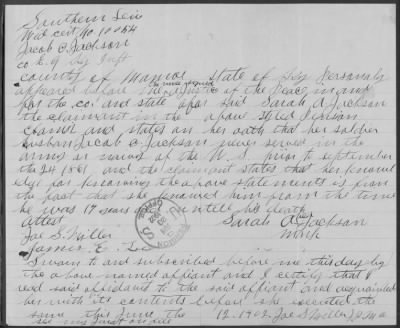 Southern Div
Wid cert No 10064
Jacob C Jackson
Co E 9 Ky Inft
County of Monroe State of Ky Personly
appeared before the undersigned Justice of the Peace in and
for the co and state afor said Sarah A Jackson
the claimant in the above stiled Pension
claimt and states on her oath that her soldier
husban Jacob C Jackson never served in the
army or navey of the U. S. prior to september
the 24 1861 and the claimant states that her knowl
edge for knowing the above statements is from
the fact that she knowed him from the time
he was 17 years untill his death
Attest
Sarah A her Jackson
Joe S Miller
mark
James E.
Swarn to and subscribed before me this day by
the above named affiant and I certify that I
read said affidavid to the said affiant and acquainted
her with its contents before she executed the
same this June the 12 1902 Joe S Miller J.P.M.C.